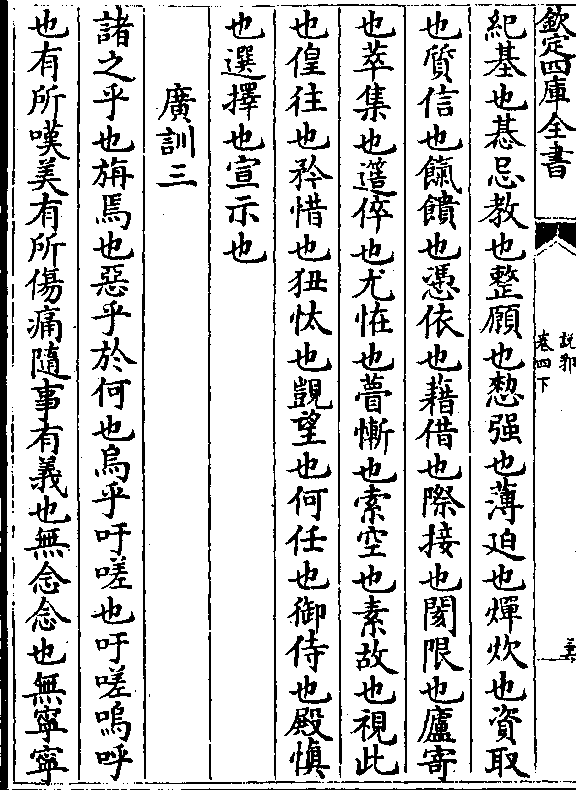 欽定四庫全書
說郛
卷四下
紀基也惎忌教也整願也憖强也薄迫也燀炊也資取
也質信也餼饋也憑依也藉借也際接也閾限也廬寄
也萃集也簉倅也尤恠也瞢慚也索空也素故也視此
也偟往也矜惜也狃忲也覬望也何任也御侍也殿慎
也選擇也宣示也
廣訓三
諸之乎也旃焉也惡乎於何也烏乎吁嗟也吁嗟嗚呼
也有所嘆美有所傷痛隨事有義也無念念也無寧寧